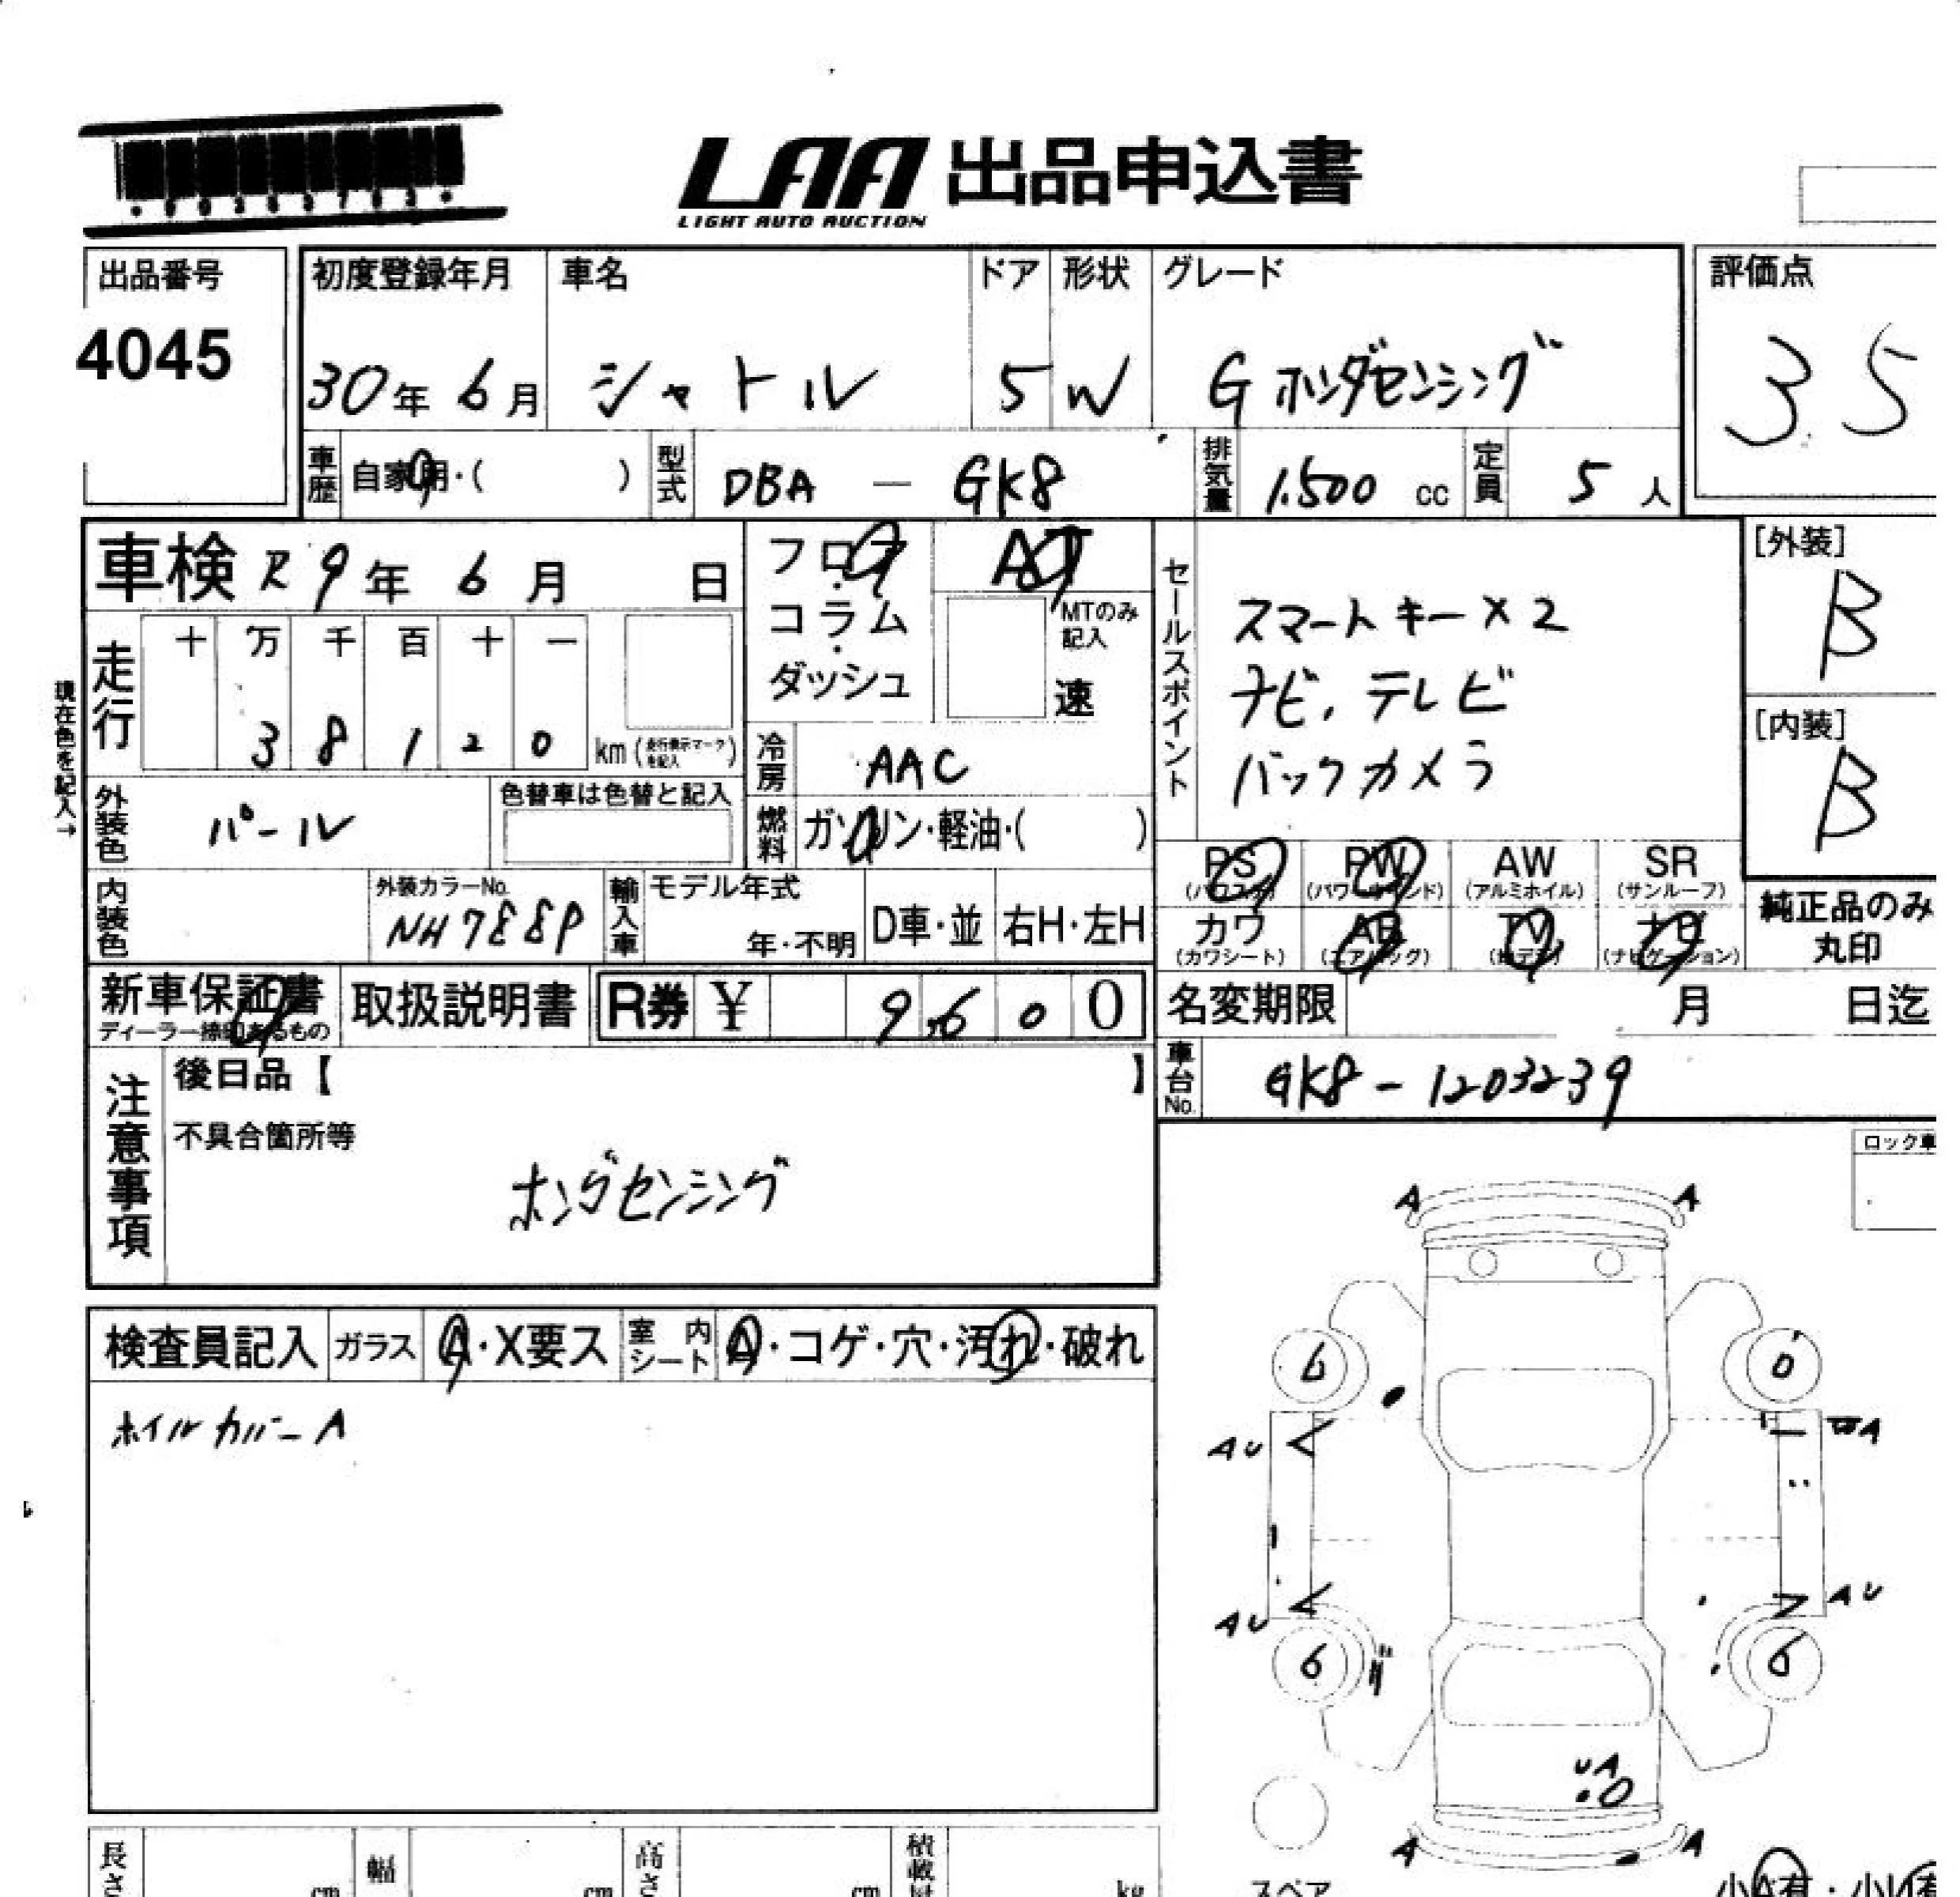 LAA 出品申込書
LIGHT AUTO AUCTION
出品番号
4045
初度登録年月 車名 ドア 形状 グレード 評価点
30年 6月 シャトル 5 W Gホンダセンシング 3.5
車歴 自家用・( ) 型式 DBA － GK8 排気量 1.500 cc 定員 5 人
車検 R 9年 6月 日
フロア・コラム・ダッシュ
AT
MTのみ記入
速
セールスポイント
スマートキー×2
ナビ、テレビ
バックカメラ
[外装]
B
[内装]
B
現在色を記入→
走行 十 万 千 百 十 一
3 8 1 2 0 km (走行表示マークを記入)
冷房 AAC
外装色 パール 色替車は色替と記入
燃料 ガソリン・軽油・( )
PS (パワステ) PW (パワーウインド) AW (アルミホイル) SR (サンルーフ)
カワ (カワシート) AB (エアバッグ) TV (地デジ) ナビ (ナビゲーション)
純正品のみ
丸印
内装色 外装カラーNo. NH788P 輸入車 モデル年式 年・不明 D車・並 右H・左H
新車保証書 取扱説明書 R券 ¥ 9,600
ディーラー捺印あるもの
名変期限 月 日迄
注意事項
後日品【 】
不具合箇所等
ホンダセンシング
車台No. GK8-1203239
ロック車
検査員記入 ガラス A・X要ス 室内シート A・コゲ・穴・汚れ・破れ
ホイルカバーA
A A
6 6
AU A
AU AU
6 6
UA
A A
スペア
小A有・小U有
長さ cm 幅 cm 高さ cm 積載量 kg